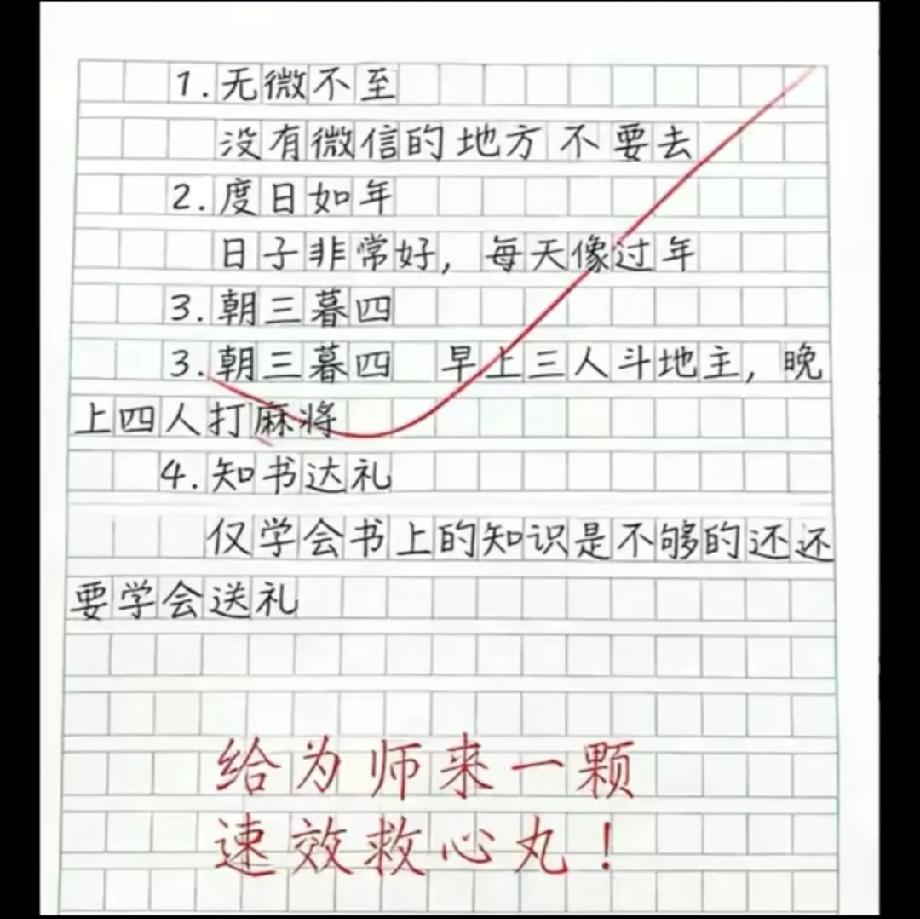 1.无微不至
没有微信的地方不要去
2.度日如年
日子非常好，每天像过年
3.朝三暮四
3.朝三暮四 早上三人斗地主，晚
上四人打麻将
4.知书达礼
仅学会书上的知识是不够的还还
要学会送礼
给为师来一颗
速效救心丸！